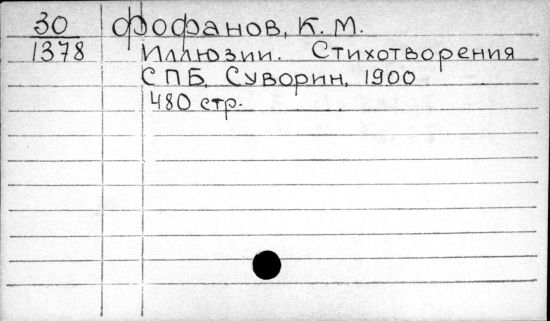 30 Фофанов, К. М.
1378 Иллюзии. Стихотворения
СПБ, Суворин, 1900
480 стр.